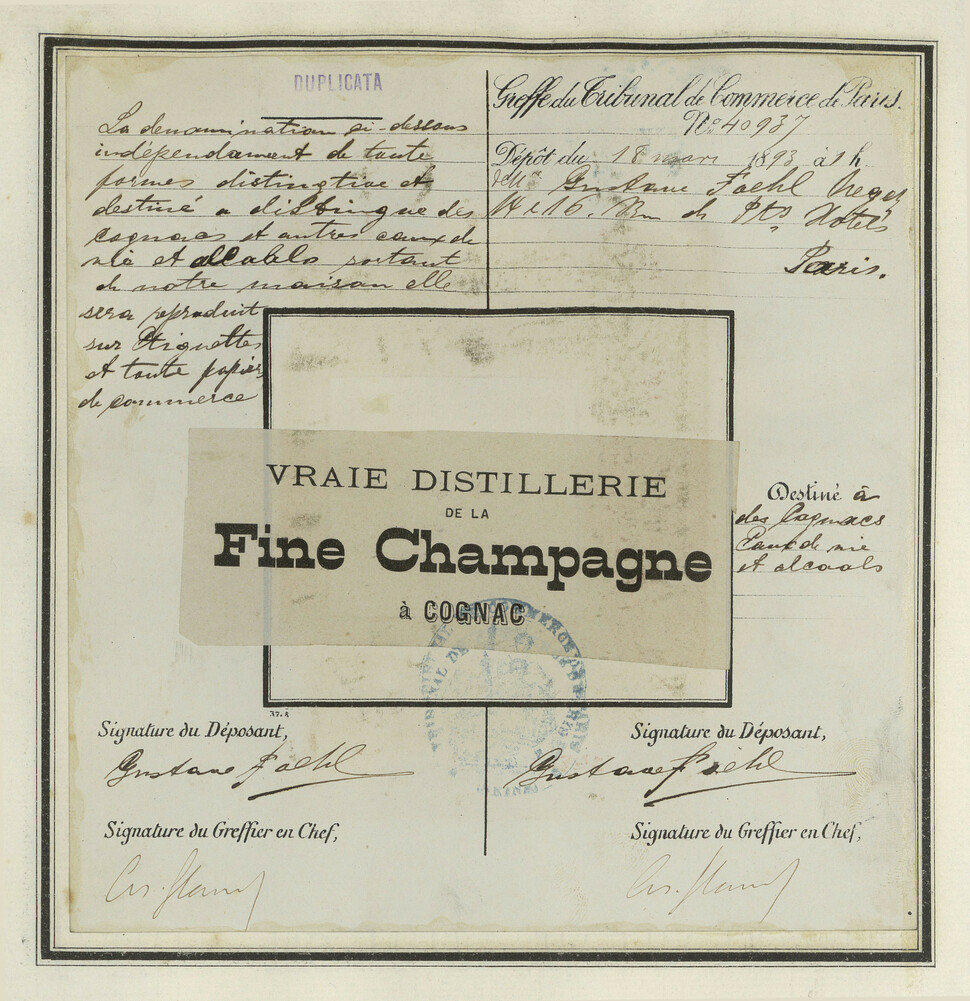 DUPLICATA
La denomination ci-dessous
indépendament de toute
formes distingtive et
destiné a distingue des
cognacs et autres eaux de
vie et alcools sortant
de notre maison elle
sera reproduit
sur Etiquettes
et toute papiers
de commerce
Greffe du Tribunal de Commerce de Paris.
No 40937
Dépôt du 18 mars 1893 à 1 h
Gustave Foehl
14 et 16. Rue de Pts Hotels
Paris.
VRAIE DISTILLERIE
DE LA
Fine Champagne
à COGNAC
Destiné à
des Cognacs
Eaux de vie
et alcools
Signature du Déposant,
Gustave Foehl
Signature du Greffier en Chef,
Signature du Déposant,
Gustave Foehl
Signature du Greffier en Chef,